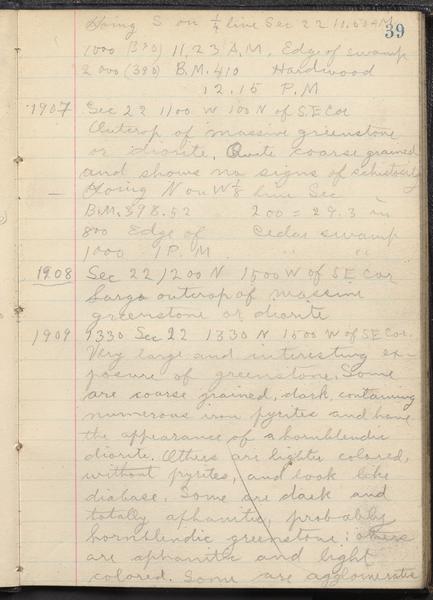 39
Going S on 1/4 line Sec 22 11.00 AM
1000 (390) 11.23 A.M. Edge of swamp
2000 (390) B.M. 410 Hardwood
12.15 P.M
1907 Sec 22 1100 W 100 N of S.E Cor
Outcrop of massive greenstone
or diorite. Quite coarse grained
and shows no signs of schistosity
Going N on W 1/8 line Sec
B.M. 398.52 200 = 29.3 in
800 Edge of Cedar swamp
1000 1 P.M. " "
1908 Sec 22 1200 N 1500 W of S E Cor
Large outcrop of massive
greenstone or diorite
1909 1330 Sec 22 1330 N 1500 W of S E Cor.
Very large and interesting ex-
posure of greenstone. Some
are coarse grained, dark, containing
numerous iron pyrites and have
the appearance of a hornblendic
diorite. Others are lighter colored,
without pyrites, and look like
diabase. Some are dark and
totally aphanitic, probably
hornblendic greenstone; others
are aphanitic and light
colored. Some are agglomerates